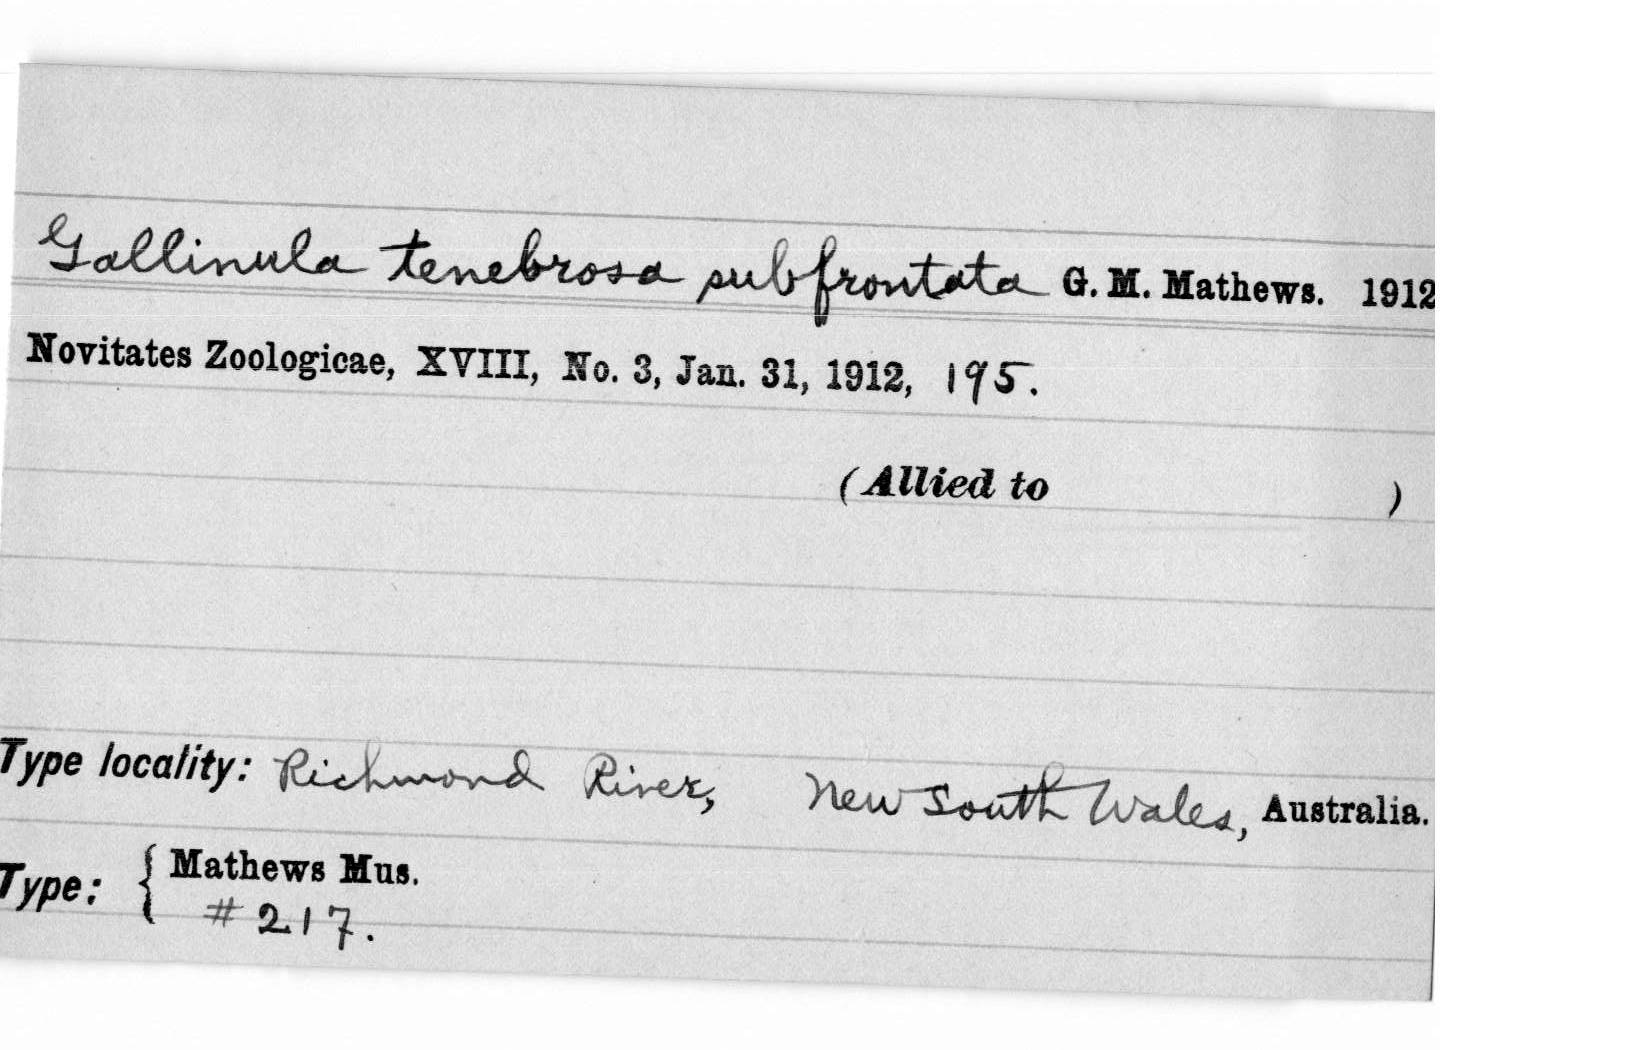 Gallinula tenebrosa subfrontata G. M. Mathews. 1912
Novitates Zoologicae, XVIII, No. 3, Jan. 31, 1912, 195.
(Allied to )
Type locality: Richmond River, New South Wales, Australia.
Type: { Mathews Mus.
#217.